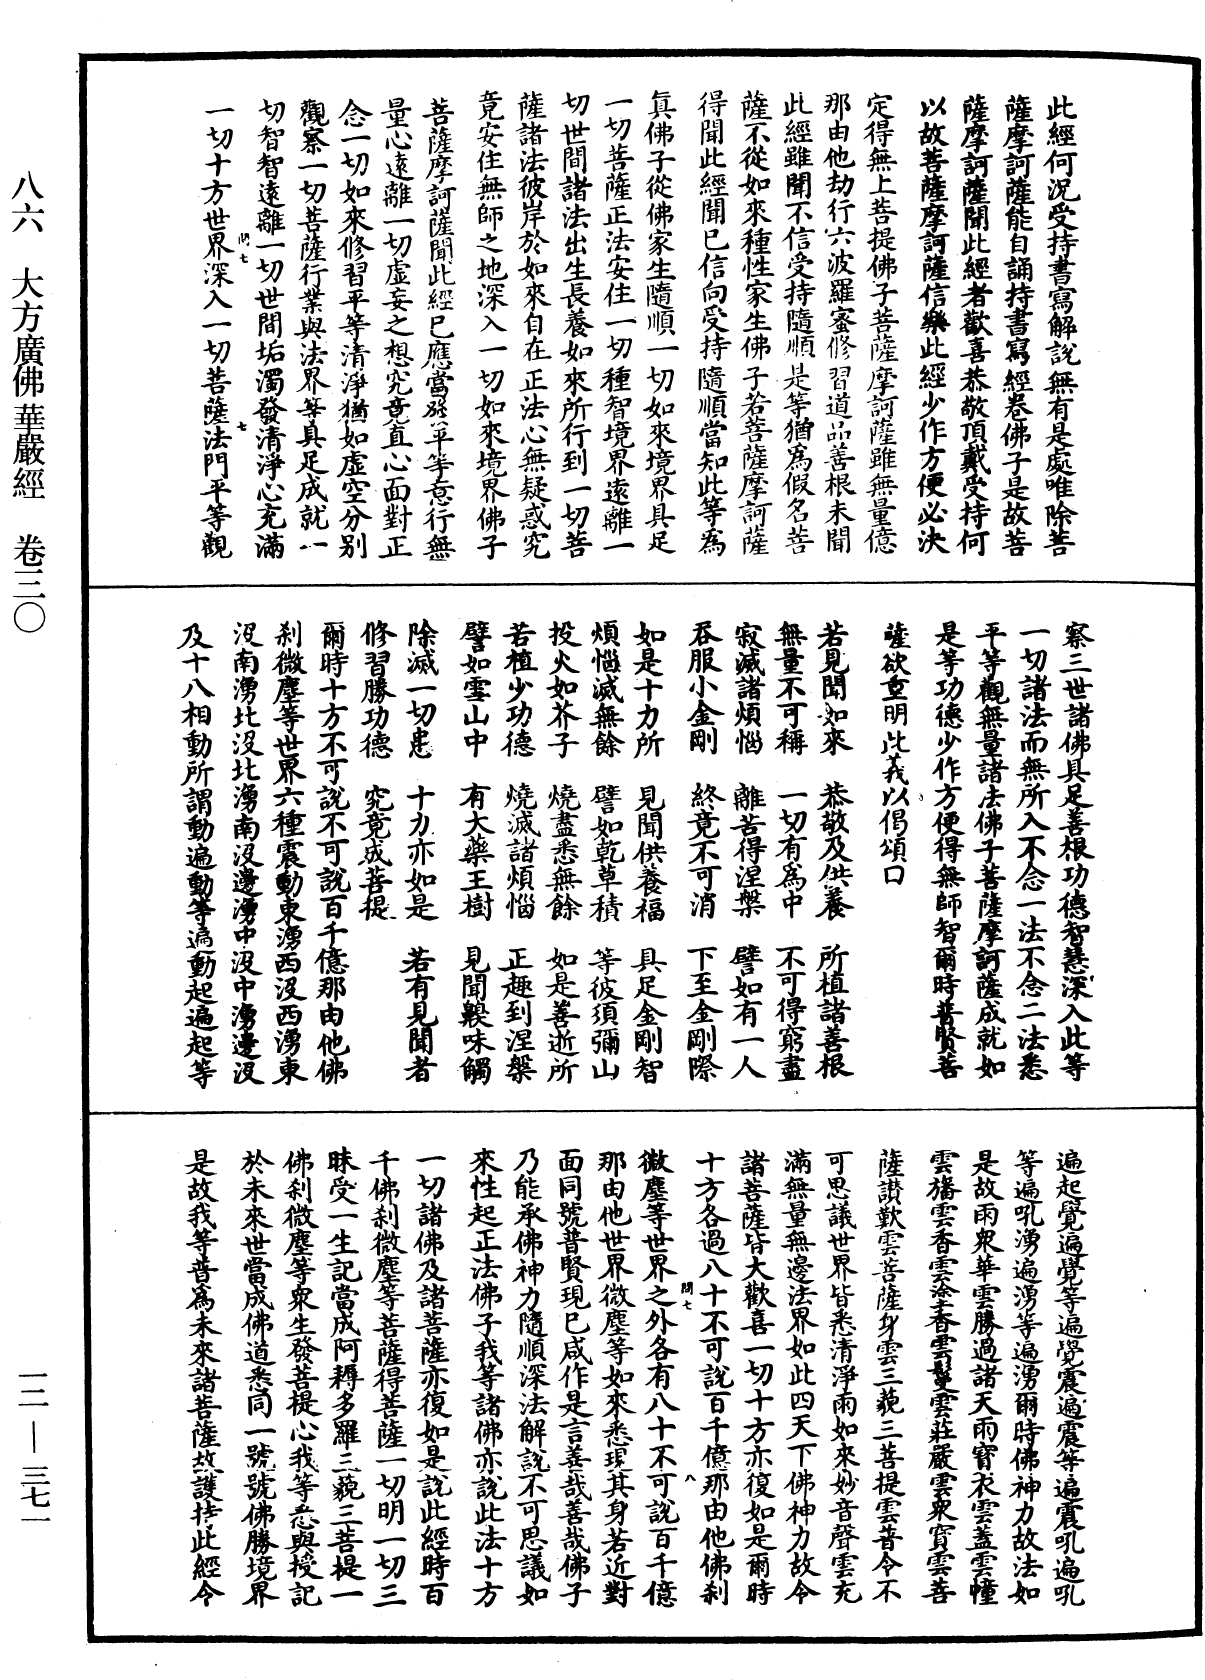 八六　大方廣佛華嚴經　卷三〇
一二—三七一
此經何況受持書寫解說無有是處唯除菩
薩摩訶薩能自誦持書寫經卷佛子是故菩
薩摩訶薩聞此經者歡喜恭敬頂戴受持何
以故菩薩摩訶薩信樂此經少作方便必決
定得無上菩提佛子菩薩摩訶薩雖無量億
那由他劫行六波羅蜜修習道品善根未聞
此經雖聞不信受持隨順是等猶為假名菩
薩不從如來種性家生佛子若菩薩摩訶薩
得聞此經聞已信向受持隨順當知此等為
真佛子從佛家生隨順一切如來境界具足
一切菩薩正法安住一切種智境界遠離一
切世間諸法出生長養如來所行到一切菩
薩諸法彼岸於如來自在正法心無疑惑究
竟安住無師之地深入一切如來境界佛子
菩薩摩訶薩聞此經已應當發平等意行無
量心遠離一切虛妄之想究竟直心面對正
念一切如來修習平等清淨猶如虛空分別
觀察一切菩薩行業與法界等具足成就一
切智智遠離一切世間垢濁發清淨心充滿
一切十方世界深入一切菩薩法門平等觀
察三世諸佛具足善根功德智慧深入此等
一切諸法而無所入不念一法不念二法悉
平等觀無量諸法佛子菩薩摩訶薩成就如
是等功德少作方便得無師智爾時普賢菩
薩欲重明此義以偈頌曰
若見聞如來　恭敬及供養　所植諸善根
無量不可稱　一切有為中　不可得窮盡
寂滅諸煩惱　離苦得涅槃　譬如有一人
吞服小金剛　終竟不可消　下至金剛際
如是十力所　見聞供養福　具足金剛智
煩惱滅無餘　譬如乾草積　等彼須彌山
投火如芥子　燒盡悉無餘　如是善逝所
若植少功德　燒滅諸煩惱　正趣到涅槃
譬如雪山中　有大藥王樹　見聞齅味觸
除滅一切患　十力亦如是　若有見聞者
修習勝功德　究竟成菩提
爾時十方不可說不可說百千億那由他佛
刹微塵等世界六種震動東湧西沒西湧東
沒南湧北沒北湧南沒邊湧中沒中湧邊沒
及十八相動所謂動遍動等遍動起遍起等
遍起覺遍覺等遍覺震遍震等遍震吼遍吼
等遍吼湧遍湧等遍湧爾時佛神力故法如
是故雨眾華雲勝過諸天雨寶衣雲蓋雲幢
雲旛雲香雲塗香雲鬘雲莊嚴雲眾寶雲菩
薩讚歎雲菩薩身雲三藐三菩提雲普令不
可思議世界皆悉清淨雨如來妙音聲雲充
滿無量無邊法界如此四天下佛神力故令
諸菩薩皆大歡喜一切十方亦復如是爾時
十方各過八十不可說百千億那由他佛刹
微塵等世界之外各有八十不可說百千億
那由他世界微塵等如來悉現其身若近對
面同號普賢現已咸作是言善哉善哉佛子
乃能承佛神力隨順深法解說不可思議如
來性起正法佛子我等諸佛亦說此法十方
一切諸佛及諸菩薩亦復如是說此經時百
千佛刹微塵等菩薩得菩薩一切明一切三
昧受一生記當成阿耨多羅三藐三菩提一
佛刹微塵等眾生發菩提心我等悉與授記
於未來世當成佛道悉同一號號佛勝境界
是故我等普為未來諸菩薩故護持此經令